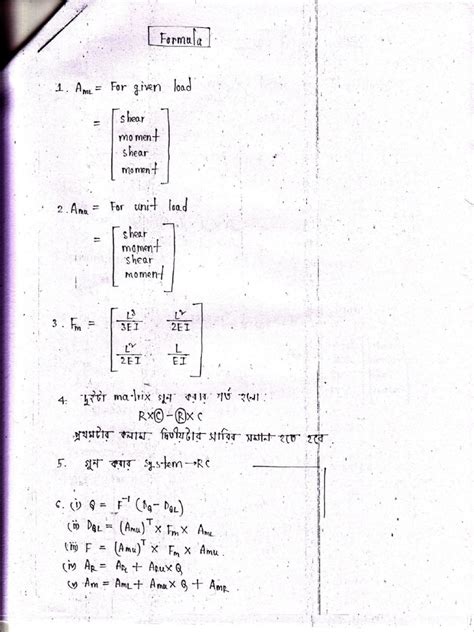 Formula
1. AML = For given load
= [shear
moment
shear
moment]
2. AMU = For unit load
= [shear
moment
shear
moment]
3. Fm = [L³/3EI L²/2EI
L²/2EI L/EI]
4. দুইটা matrix গুন করার শর্ত হলো
R×Ⓒ – Ⓡ×C
প্রথমটার কলাম দ্বিতীয়টার সারির সমান হতে হবে
5. গুন করার system → RC
6. (i) Q = F⁻¹ (DQ - DQL)
(ii) DQL = (AMU)ᵀ × Fm × AML
(iii) F = (AMU)ᵀ × Fm × AMU.
(iv) AR = ARL + ARU × Q
(v) AM = AML + AMU × Q + AMR